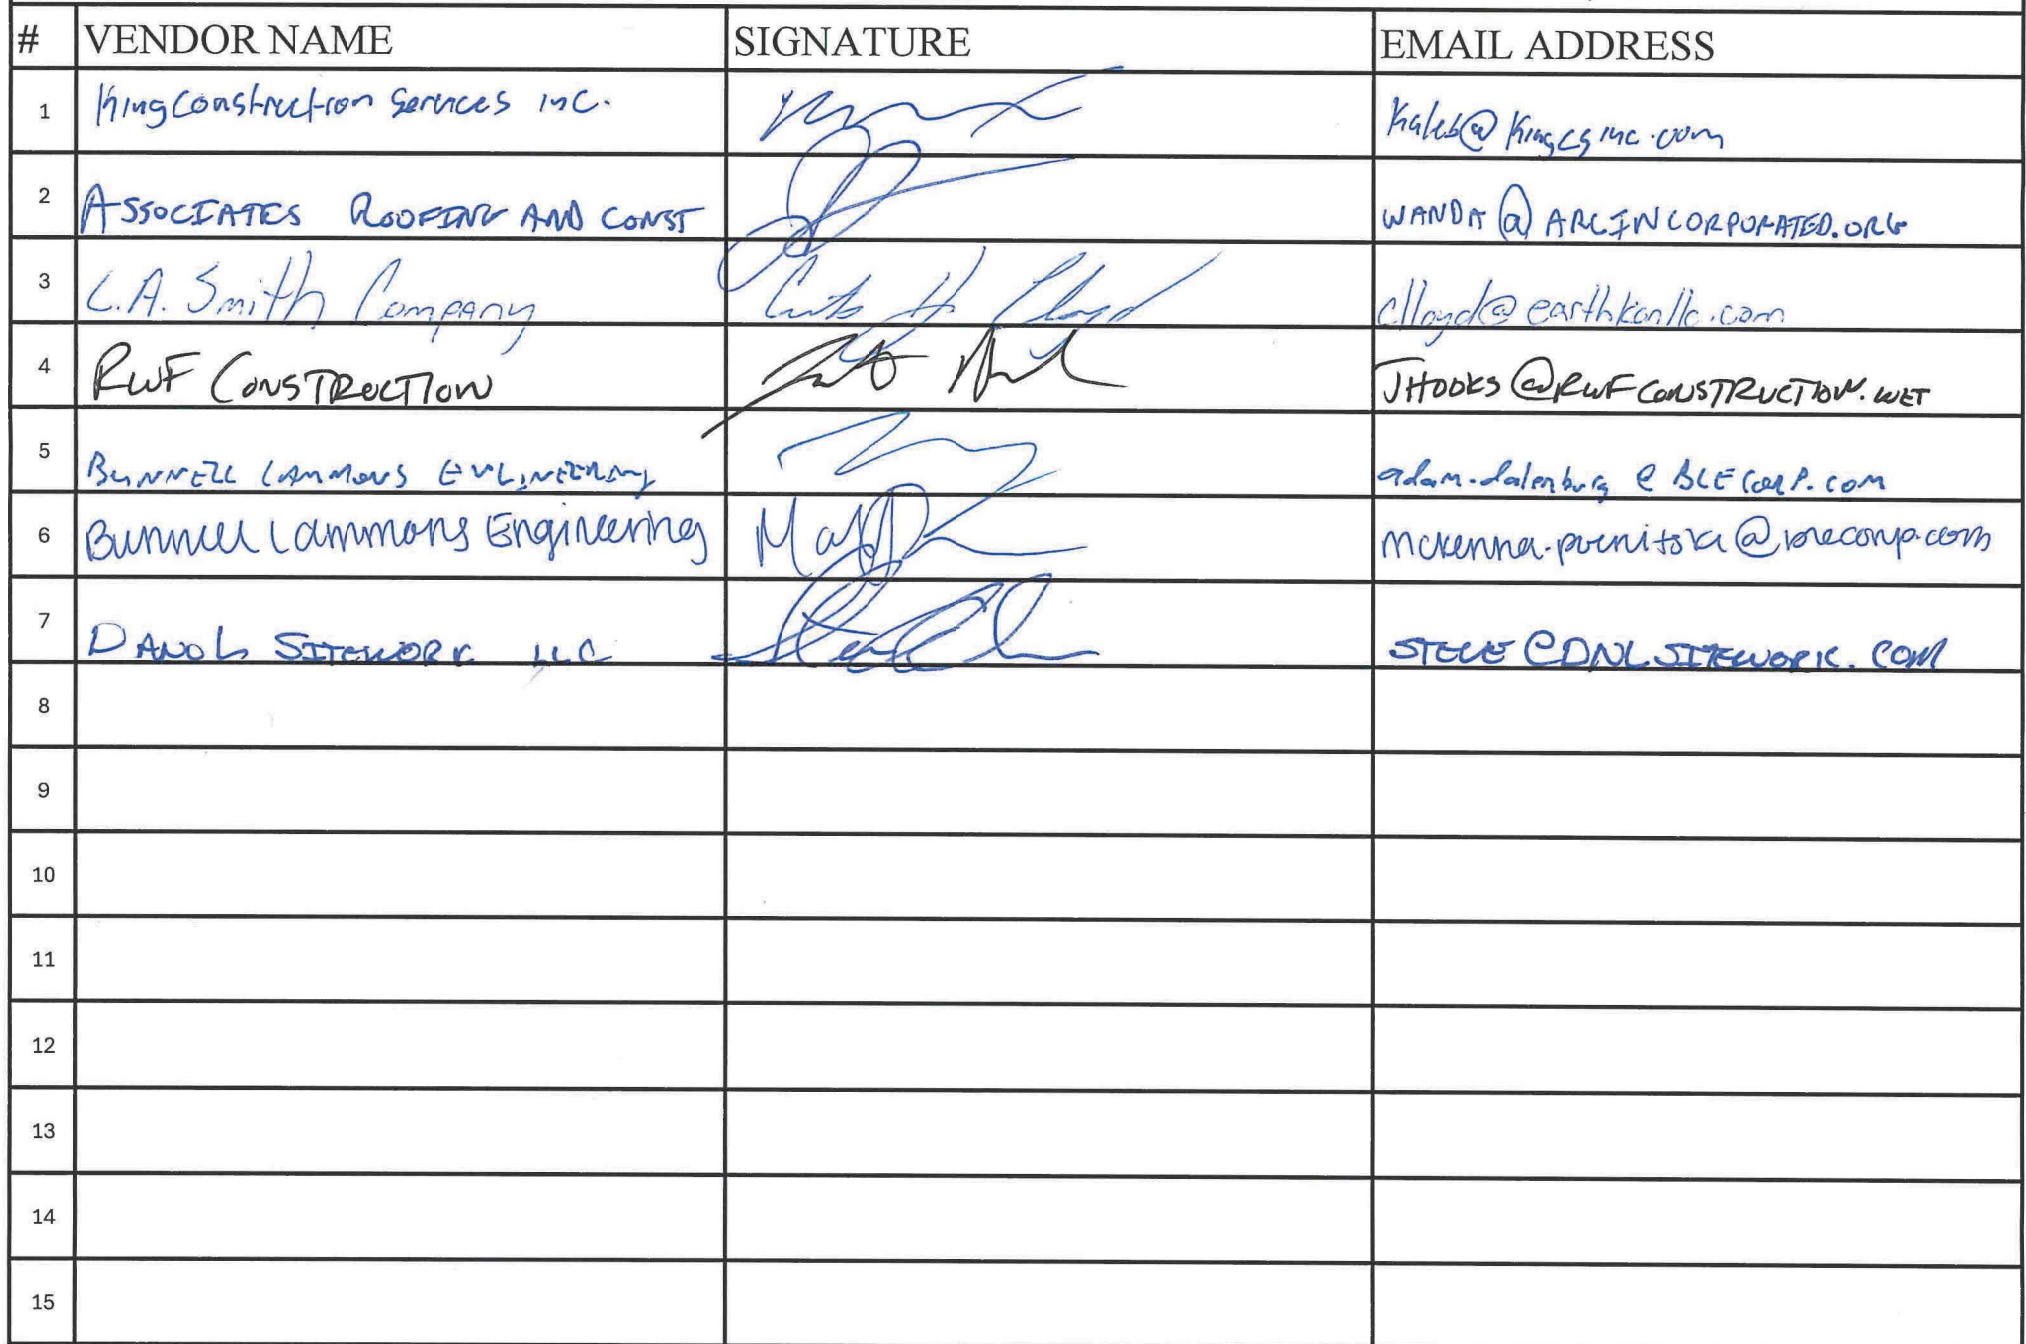 # VENDOR NAME SIGNATURE EMAIL ADDRESS
1 King Construction Services inc. Kaleb@kingcsinc.com
2 ASSOCIATES ROOFING AND CONST WANDA@ARCINCORPORATED.ORG
3 L.A. Smith Company Curtis H Lloyd clloyd@earthkonllc.com
4 RWF CONSTRUCTION JHOOKS@RWFCONSTRUCTION.NET
5 BUNNELL LAMMONS ENGINEERING adam.dalenburg@BLECORP.COM
6 Bunnell Lammons Engineering
7 DANOL SITEWORK LLC STEVE@DNLSITEWORK.COM
8
9
10
11
12
13
14
15